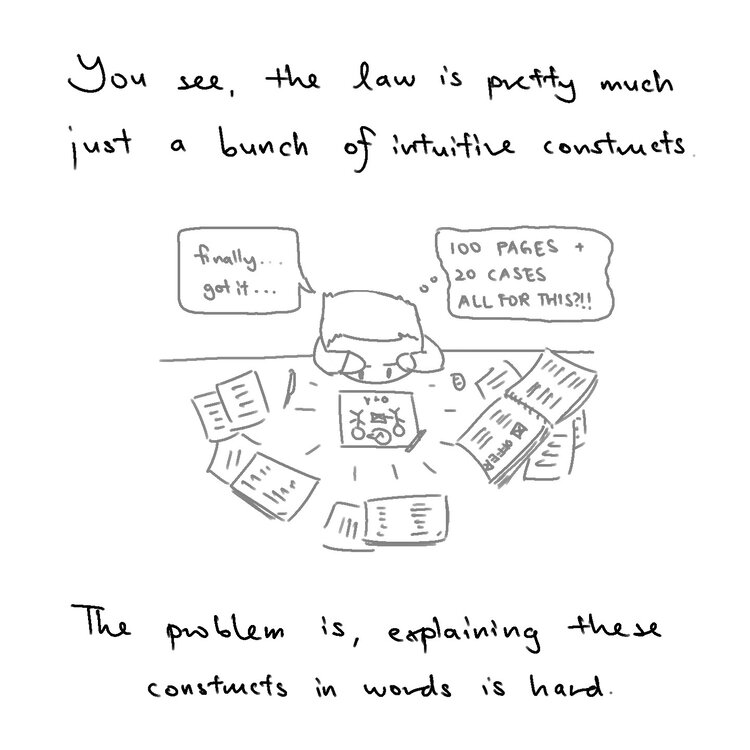 You see, the law is pretty much
just a bunch of intuitive constructs.
finally...
got it...
100 PAGES +
20 CASES
ALL FOR THIS?!!
OFFER
The problem is, explaining these
constructs in words is hard.